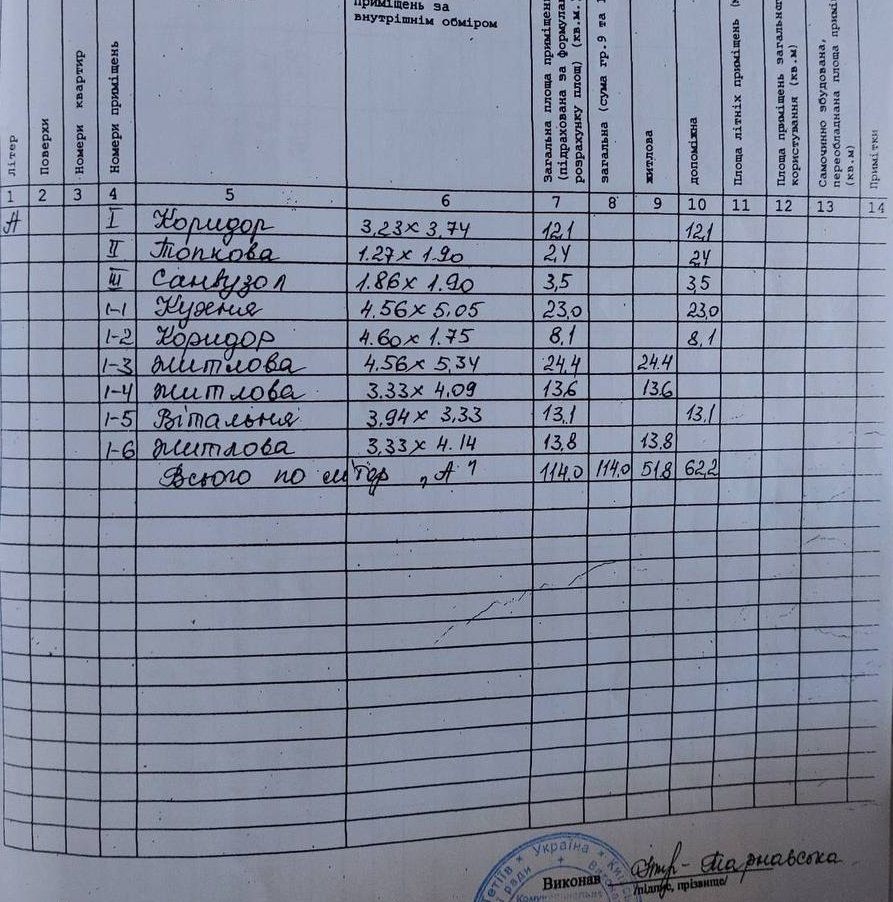 приміщень за
внутрішнім обміром
літер
Поверхи
Номери квартир
Номери приміщень
Загальна площа приміщен
(підрахована за формулам
розрахунку площ) (кв.м.
загальна (сума гр.9 та 1
житлова
допоміжна
Площа літніх приміщень (
Площа приміщень загального
користування (кв.м)
Самочинно збудована,
переобладнана площа примі
(кв.м)
Примітки
1 2 3 4 5 6 7 8 9 10 11 12 13 14
А I Коридор 3,23 x 3,74 12,1 12,1
II Топкова 1.27 x 1.90 2,4 2,4
III Санвузол 1.86 x 1.90 3,5 3,5
1-1 Кухня 4.56 x 5,05 23,0 23,0
1-2 Коридор 4.60 x 1.75 8,1 8,1
1-3 Житлова 4.56 x 5,34 24.4 24.4
1-4 Житлова 3.33 x 4.09 13,6 13,6
1-5 Вітальня 3,94 x 3,33 13,1 13,1
1-6 Житлова 3,33 x 4.14 13,8 13,8
Всього по літер „А" 114.0 114.0 51.8 62,2
Україна
Виконав
Тарнавська
/підпис, прізвище/